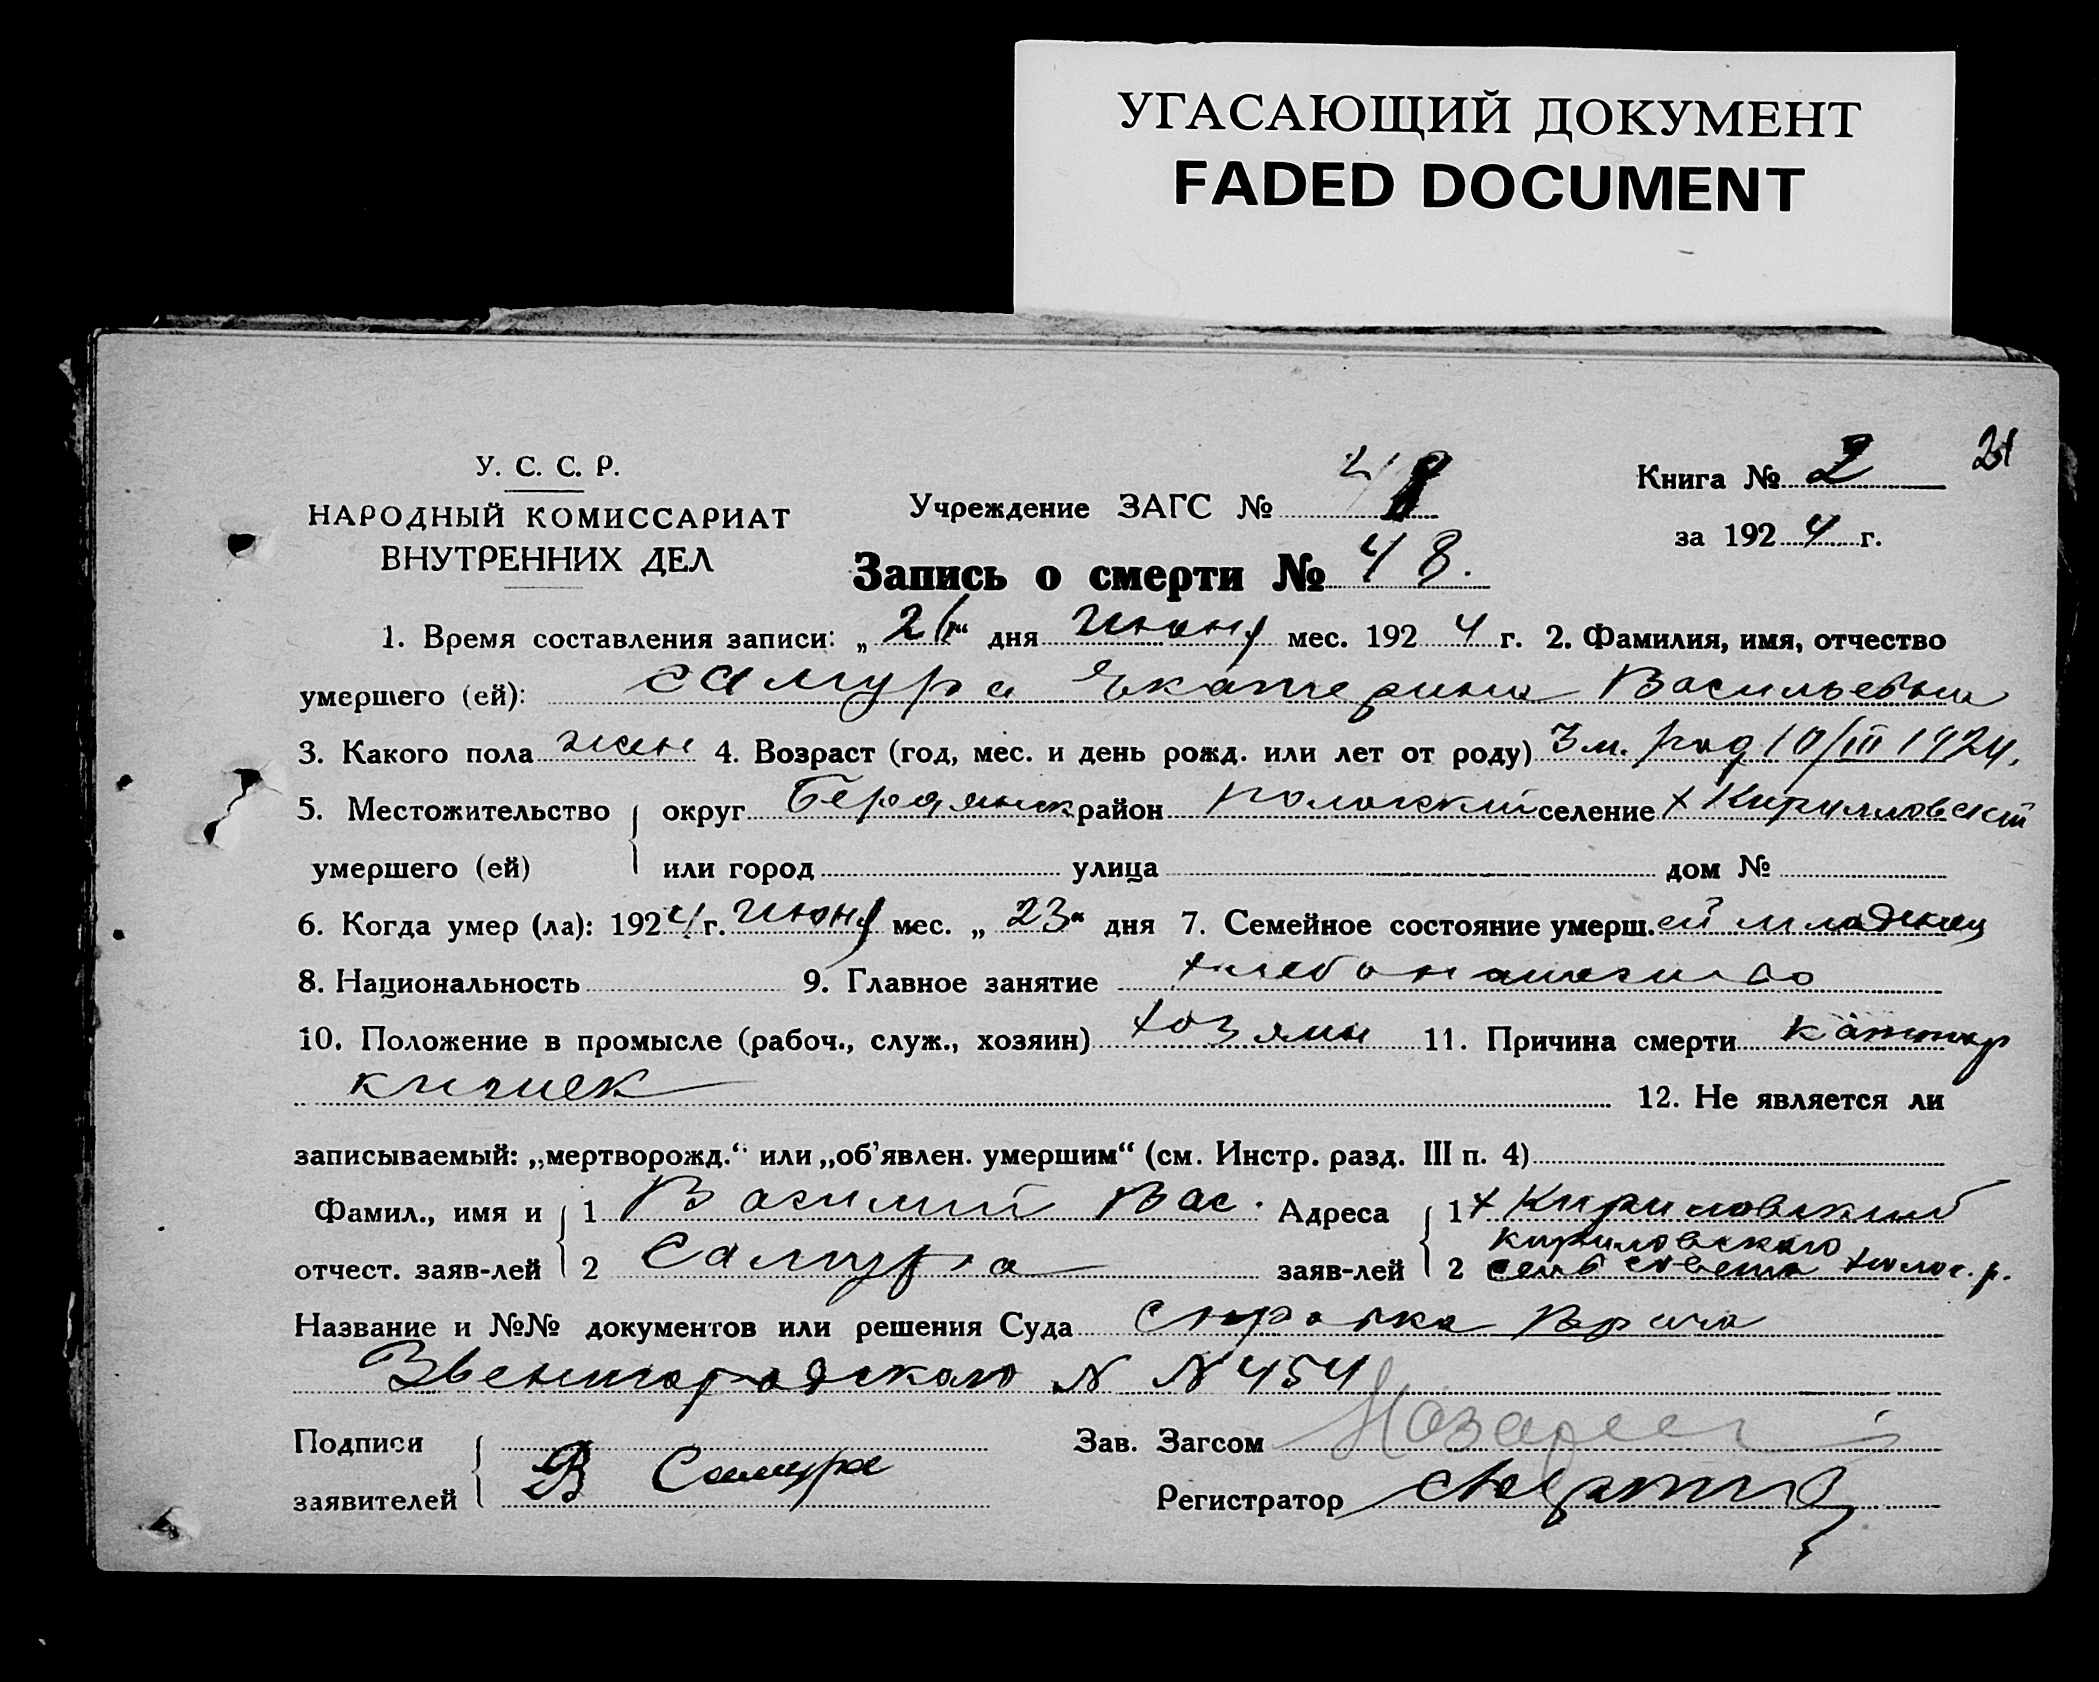 УГАСАЮЩИЙ ДОКУМЕНТ
FADED DOCUMENT
21
У. С. С. Р.
НАРОДНЫЙ КОМИССАРИАТ
ВНУТРЕННИХ ДЕЛ
Учреждение ЗАГС №
Книга № 2
за 1924 г.
Запись о смерти № 48.
1. Время составления записи: „26“ дня Июня мес. 1924 г. 2. Фамилия, имя, отчество
умершего (ей): Самура Екатерина Васильевна
3. Какого пола жен 4. Возраст (год, мес. и день рожд. или лет от роду) 3 м. род 10/III 1924.
5. Местожительство округ Бердянск район Пологский селение х Кирилловский
умершего (ей) или город улица дом №
6. Когда умер (ла): 1924 г. Июня мес. „23“ дня 7. Семейное состояние умерш.ей младенец
8. Национальность 9. Главное занятие хлебопашество
10. Положение в промысле (рабоч., служ., хозяин) хозяин 11. Причина смерти каттар
кишек
12. Не является ли
записываемый: „мертворожд.“ или „об’явлен. умершим“ (см. Инстр. разд. III п. 4)
Фамил., имя и 1 Василий Вас. Адреса 1 х Кириловский
Кириловского
отчест. заяв-лей 2 Самура заяв-лей 2 сель совета р.
Название и №№ документов или решения Суда Справка Врача
Звенигородского N N 454
Подписи Зав. Загсом
В Самура
заявителей Регистратор